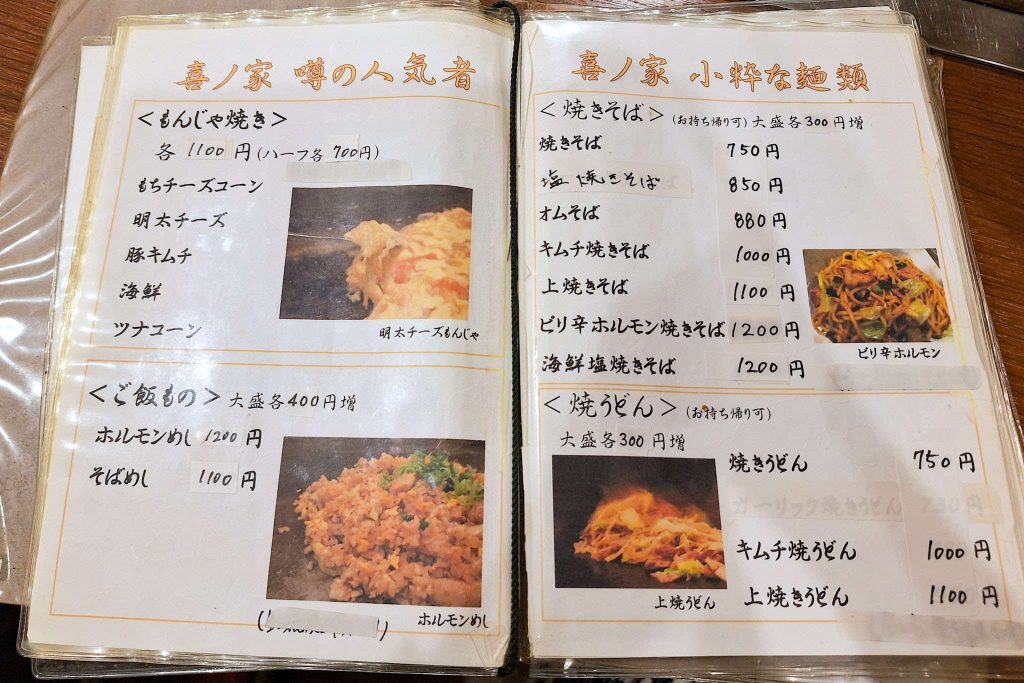 喜ノ家 噂の人気者
<もんじゃ焼き>
各 1100 円 (ハーフ各 700円)
もちチーズコーン
明太チーズ
豚キムチ
海鮮
ツナコーン
明太チーズもんじゃ
<ご飯もの> 大盛各400円増
ホルモンめし 1200 円
そばめし 1100 円
ホルモンめし
喜ノ家 小粋な麺類
<焼きそば> (お持ち帰り可) 大盛各300円増
焼きそば 750円
塩焼きそば 850円
オムそば 880円
キムチ焼きそば 1000円
上焼きそば 1100円
ピリ辛ホルモン焼きそば 1200円
海鮮塩焼きそば 1200円
ピリ辛ホルモン
<焼うどん> (お持ち帰り可)
大盛各300円増
焼きうどん 750円
ガーリック焼きうどん
キムチ焼うどん 1000円
上焼きうどん 1100円
上焼うどん